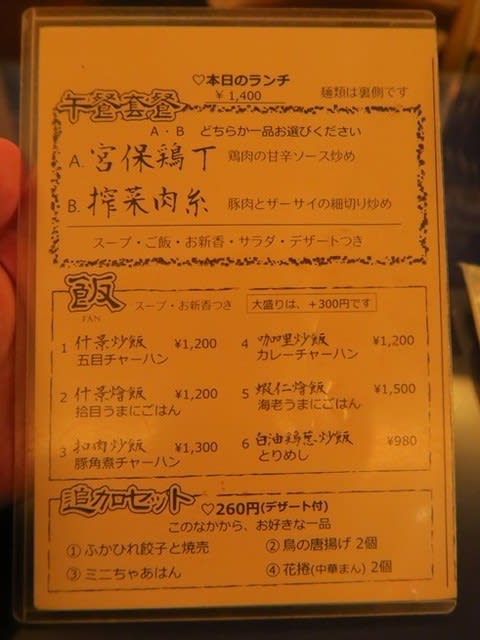 ♡本日のランチ
¥ 1,400
麺類は裏側です
午餐套餐
A・B どちらか一品お選びください
A. 宮保鶏丁 鶏肉の甘辛ソース炒め
B. 搾菜肉糸 豚肉とザーサイの細切り炒め
スープ・ご飯・お新香・サラダ・デザートつき
飯 スープ・お新香つき 大盛りは、+300円です
FAN
1 什景炒飯 ¥1,200
五目チャーハン
2 什景燴飯 ¥1,200
拾目うまにごはん
3 扣肉炒飯 ¥1,300
豚角煮チャーハン
4 咖喱炒飯 ¥1,200
カレーチャーハン
5 蝦仁燴飯 ¥1,500
海老うまにごはん
6 白油鶏葱炒飯 ¥980
とりめし
追加セット ♡260円(デザート付)
このなかから、お好きな一品
① ふかひれ餃子と焼売
② 鳥の唐揚げ 2個
③ ミニちゃあはん
④ 花捲(中華まん) 2個